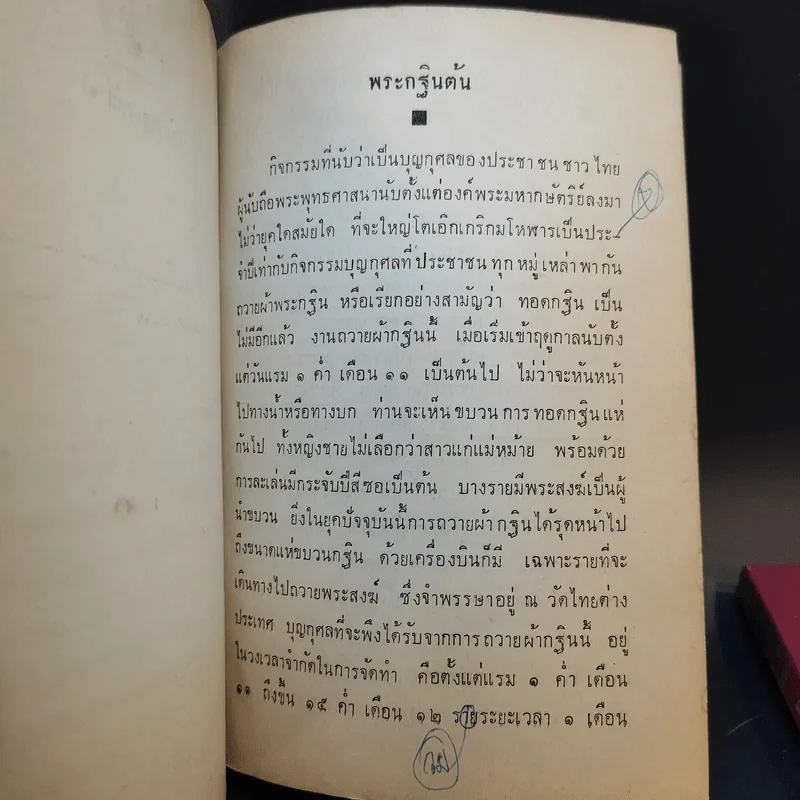 พระกฐินต้น
กิจกรรมที่นับว่าเป็นบุญกุศลของประชาชนชาวไทย
ผู้นับถือพระพุทธศาสนานับตั้งแต่องค์พระมหากษัตริย์ลงมา
ไม่ว่ายุคใดสมัยใด ที่จะใหญ่โตเอิกเกริกมโหฬารเป็นประ-
จำปีเท่ากับกิจกรรมบุญกุศลที่ประชาชนทุกหมู่เหล่าพากัน
ถวายผ้าพระกฐิน หรือเรียกอย่างสามัญว่า ทอดกฐิน เป็น
ไม่มีอีกแล้ว งานถวายผ้ากฐินนี้ เมื่อเริ่มเข้าฤดูกาลนับตั้ง
แต่วันแรม ๑ ค่ำ เดือน ๑๑ เป็นต้นไป ไม่ว่าจะหันหน้า
ไปทางน้ำหรือทางบก ท่านจะเห็นขบวนการทอดกฐินแห่
กันไป ทั้งหญิงชายไม่เลือกว่าสาวแก่แม่หม้าย พร้อมด้วย
การละเล่นมีกระจับปี่สีซอเป็นต้น บางรายมีพระสงฆ์เป็นผู้
นำขบวน ยิ่งในยุคปัจจุบันนี้การถวายผ้ากฐินได้รุดหน้าไป
ถึงขนาดแห่ขบวนกฐิน ด้วยเครื่องบินก็มี เฉพาะรายที่จะ
เดินทางไปถวายพระสงฆ์ ซึ่งจำพรรษาอยู่ ณ วัดไทยต่าง
ประเทศ บุญกุศลที่จะพึงได้รับจากการถวายผ้ากฐินนี้ อยู่
ในวงเวลาจำกัดในการจัดทำ คือตั้งแต่แรม ๑ ค่ำ เดือน
๑๑ ถึงขึ้น ๑๕ ค่ำ เดือน ๑๒ รายระยะเวลา ๑ เดือน
วม